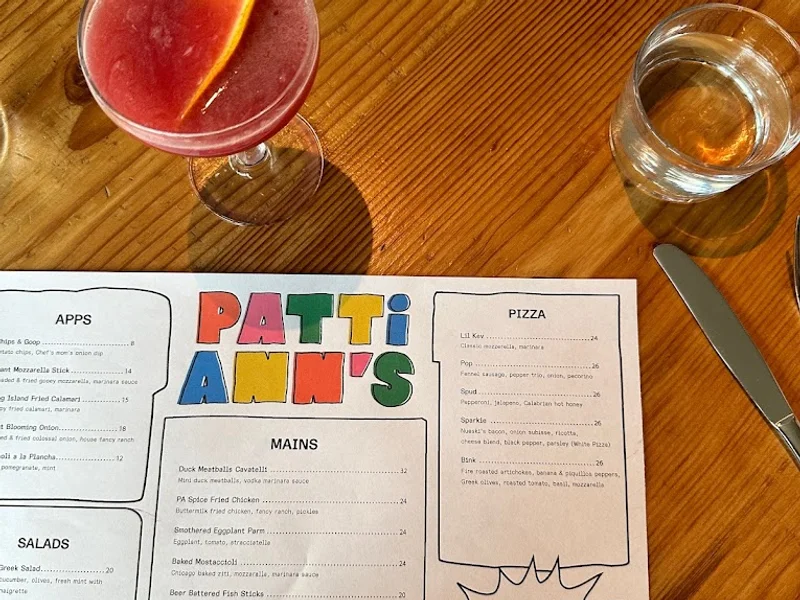 PATTi
ANN'S
APPS
Chips & Goop 8
potato chips, Chef's mom's onion dip
ant Mozzarella Stick 14
aded & fried gooey mozzarella, marinara sauce
g Island Fried Calamari 15
py fried calamari, marinara
t Blooming Onion 18
ed & fried colossal onion, house fancy ranch
oli a la Plancha 12
pomegranate, mint
SALADS
Greek Salad 20
cucumber, olives, fresh mint with
naigrette
MAINS
Duck Meatballs Cavatelli 32
Mini duck meatballs, vodka marinara sauce
PA Spice Fried Chicken 24
Buttermilk fried chicken, fancy ranch, pickles
Smothered Eggplant Parm 24
Eggplant, tomato, stracciatelle
Baked Mostaccioli 24
Chicago baked ziti, mozzarella, marinara sauce
Beer Battered Fish Sticks 20
PIZZA
Lil Kev 24
Classic mozzarella, marinara
Pop 26
Fennel sausage, pepper trio, onion, pecorino
Spud 26
Pepperoni, jalapeno, Calabrian hot honey
Sparkle 26
Nueski's bacon, onion subiase, ricotta,
cheese blend, black pepper, parsley (White Pizza)
Bink 26
Fire roasted artichokes, banana & piquillos peppers,
Greek olives, roasted tomato, basil, mozzarella